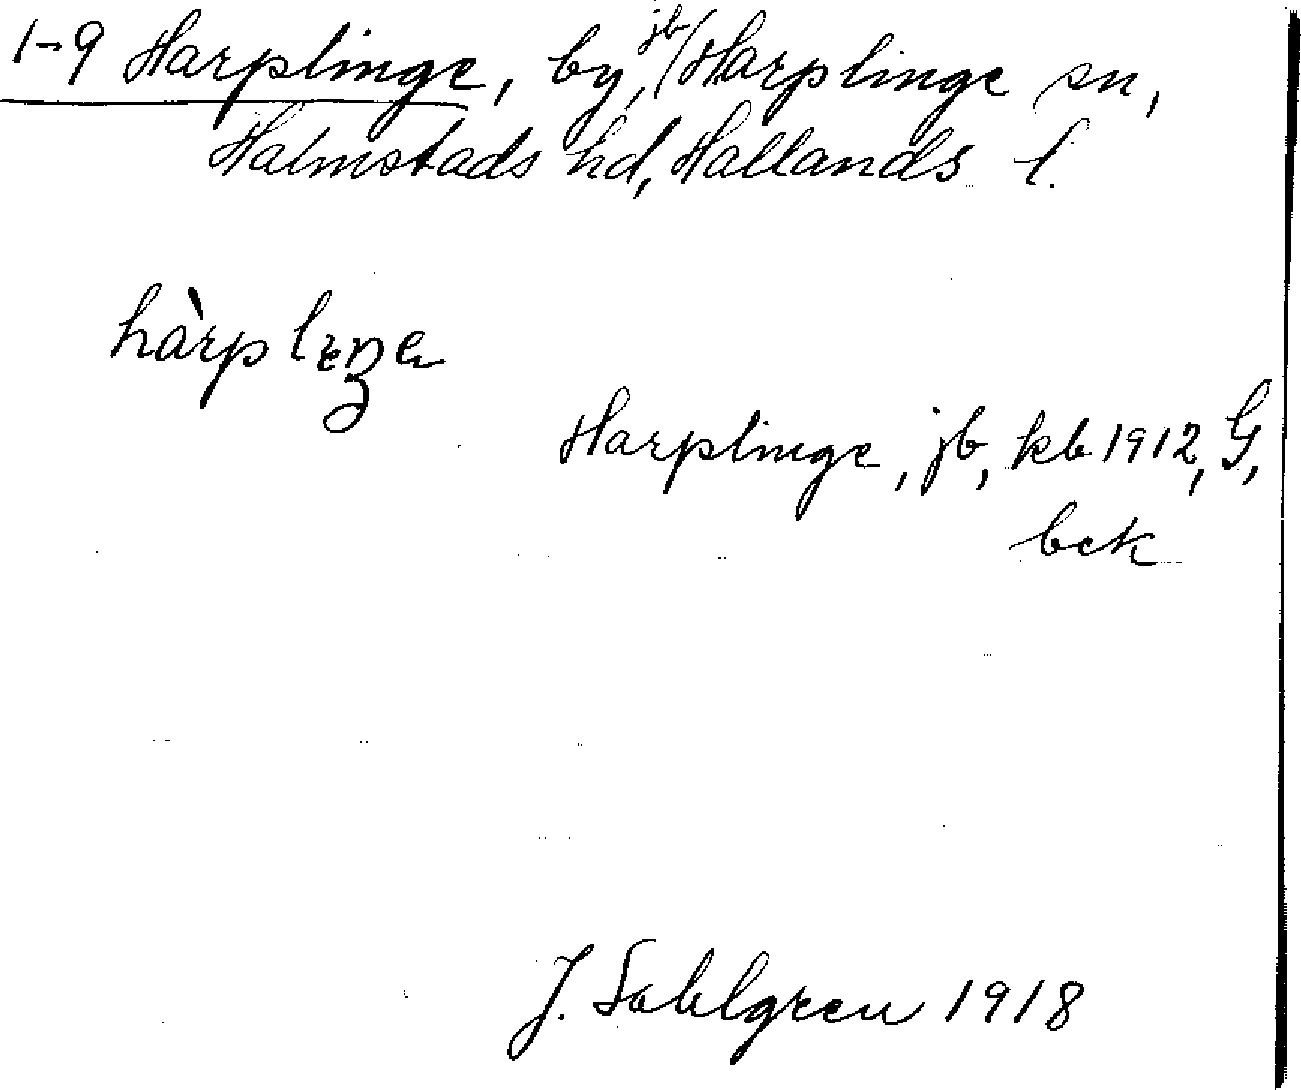 1-9 Harplinge, by, jb/Harplinge sn,
Halmstads hd, Hallands l.
Harplinge, jb, kb 1912, G,
bek
J. Sahlgren 1918